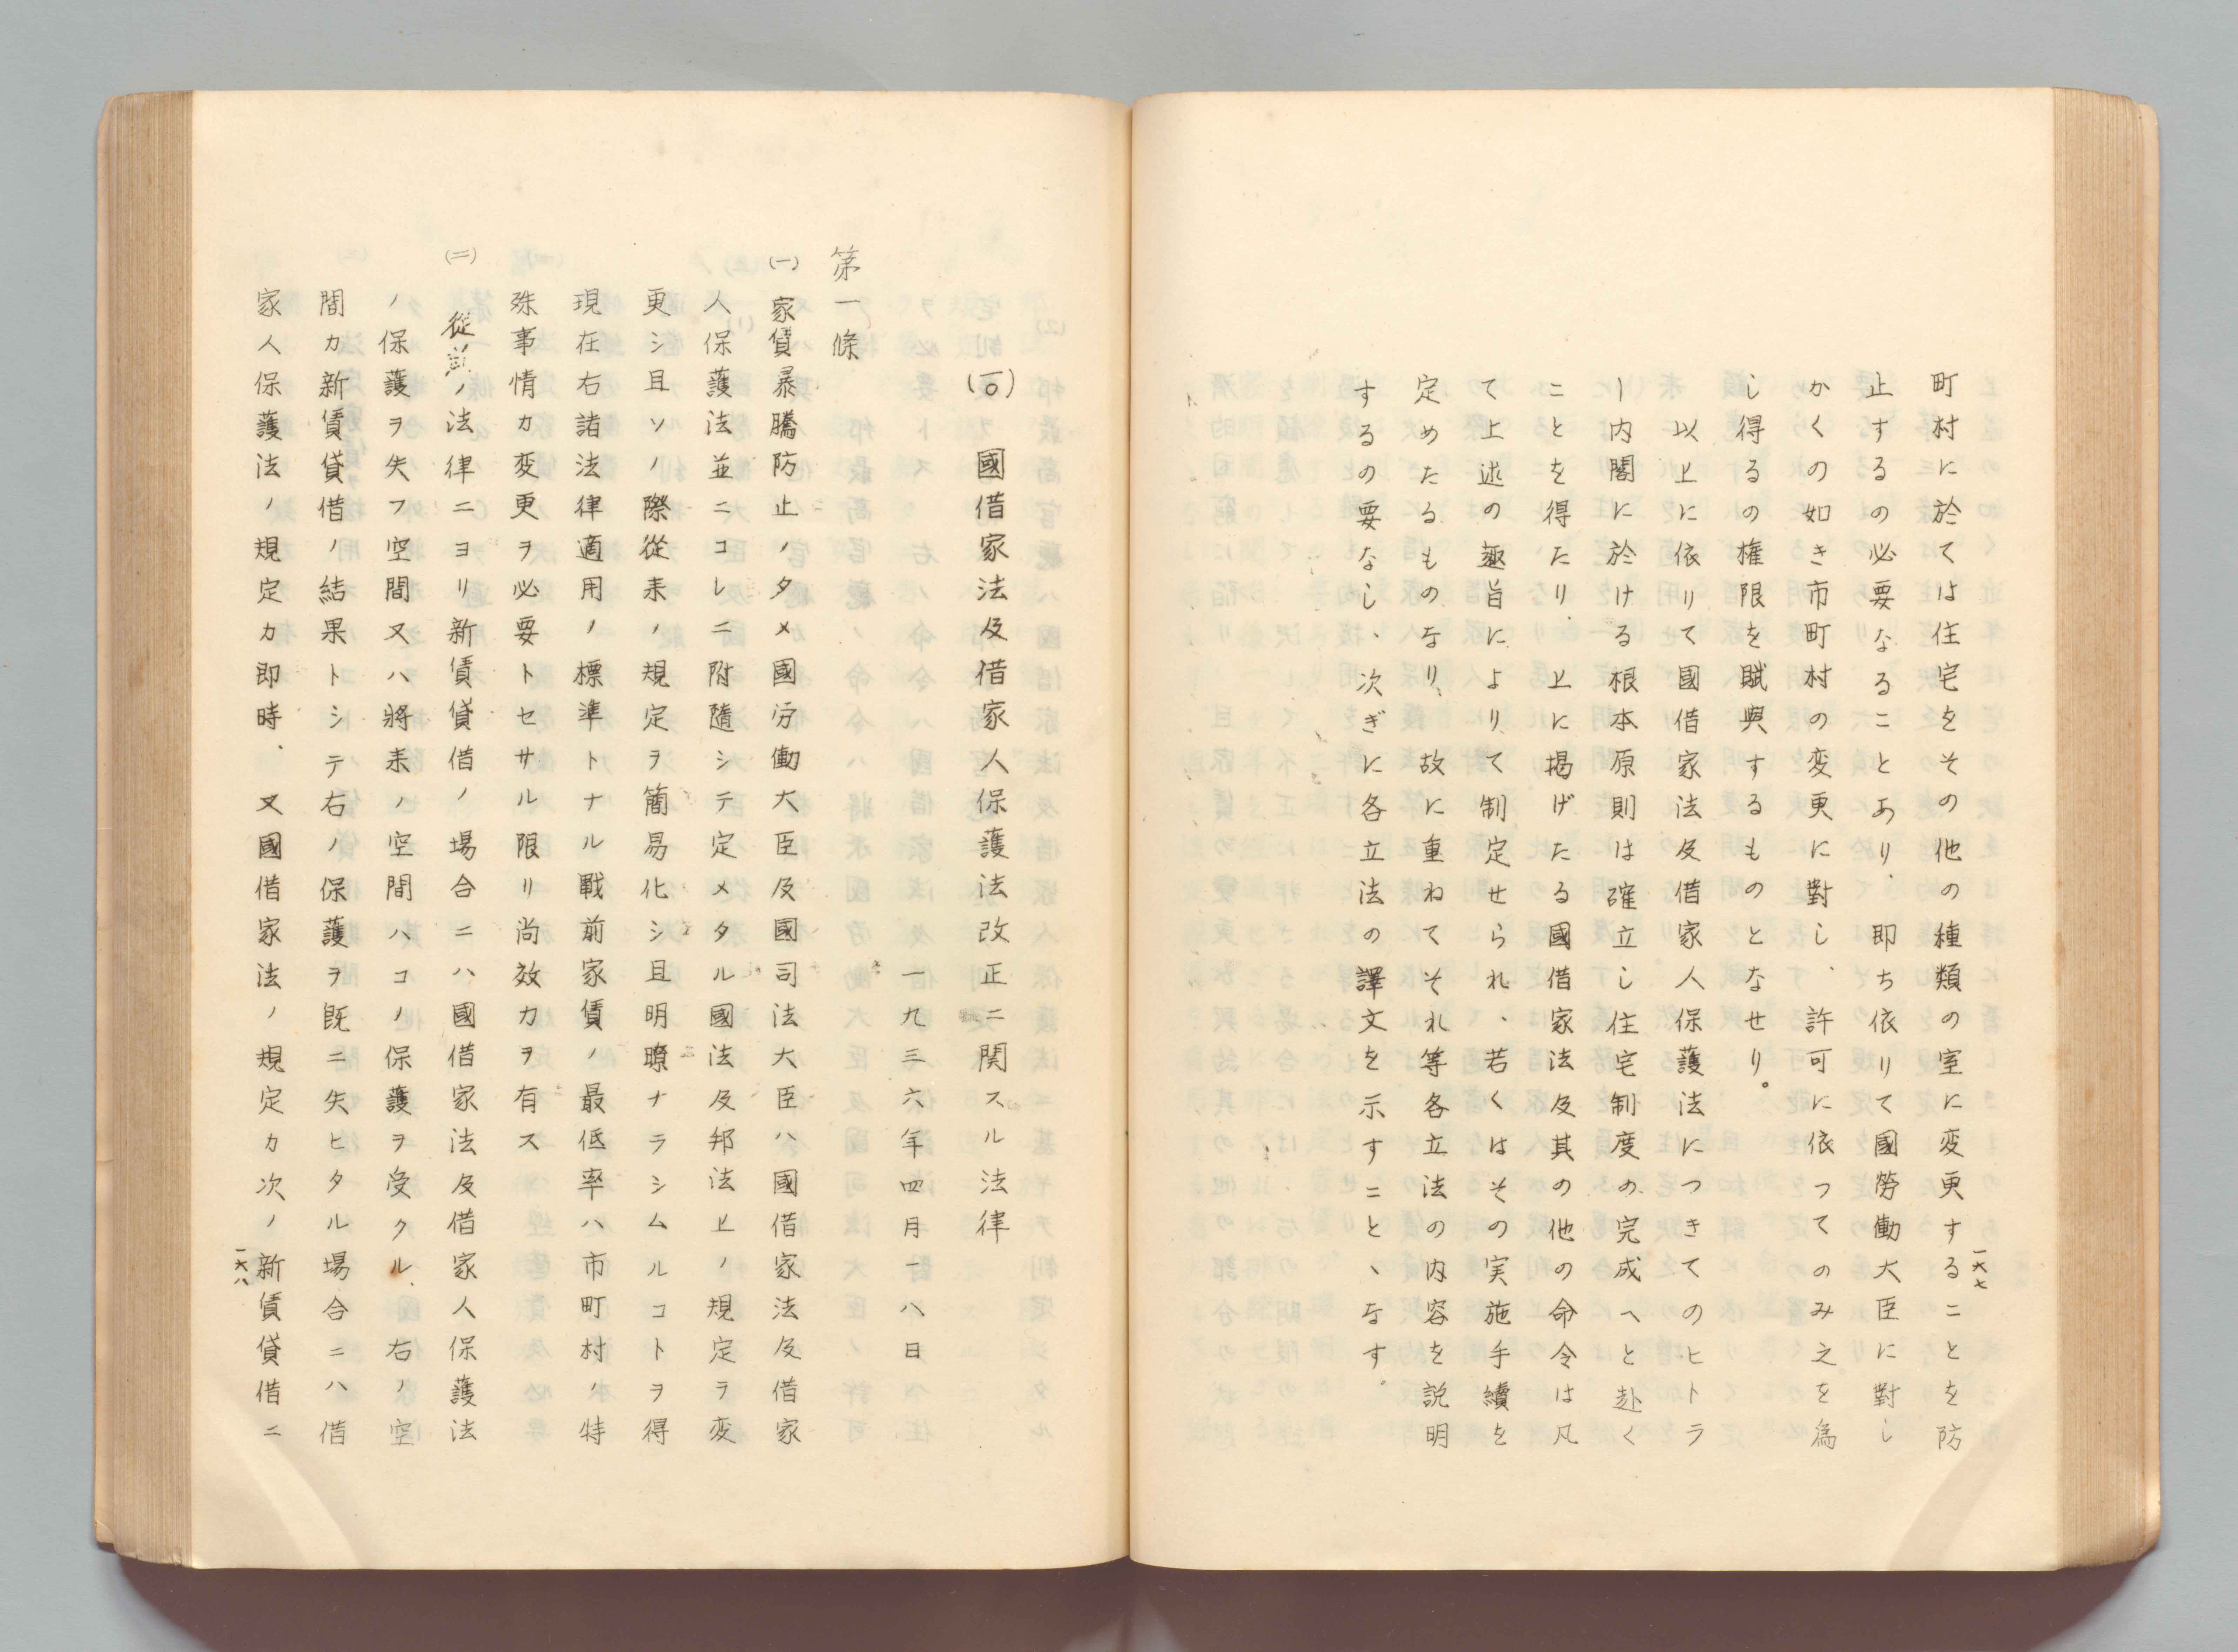 町村に於ては住宅をその他の種類の室に変更することを防
止するの必要なることあり、即ち依りて國勞働大臣に對し
かくの如き市町村の変更に對し、許可に依つてのみ之を為
し得るの権限を賦與するものとなせり。
以上に依りて國借家法及借家人保護法につきてのヒトラ
ー内閣に於ける根本原則は確立し住宅制度の完成へと赴く
ことを得たり、上に揭げたる國借家法及其の他の命令は凡
て上述の趣旨によりて制定せられ、若くはその実施手續を
定めたるものなり、故に重ねてそれ等各立法の内容を説明
するの要なし、次ぎに各立法の譯文を示すこと、なす。
一六七
(一〇) 國借家法及借家人保護法改正ニ関スル法律
一九三六年四月一八日
第一條
(一) 家賃暴騰防止ノタメ國労働大臣及國司法大臣ハ國借家法及借家
人保護法並ニコレニ附隨シテ定メタル國法及邦法上ノ規定ヲ変
更シ且ソノ際從来ノ規定ヲ簡易化シ且明暸ナラシムルコトヲ得
現在右諸法律適用ノ標準トナル戰前家賃ノ最低率ハ市町村ノ特
殊事情カ変更ヲ必要トセサル限リ尚效力ヲ有ス
(二) 從前ノ法律ニヨリ新賃貸借ノ場合ニハ國借家法及借家人保護法
ノ保護ヲ失フ空間又ハ將来ノ空間ハコノ保護ヲ受クル、右ノ空
間カ新賃貸借ノ結果トシテ右ノ保護ヲ既ニ失ヒタル場合ニハ借
家人保護法ノ規定カ即時、又國借家法ノ規定カ次ノ新賃貸借ニ
一六八